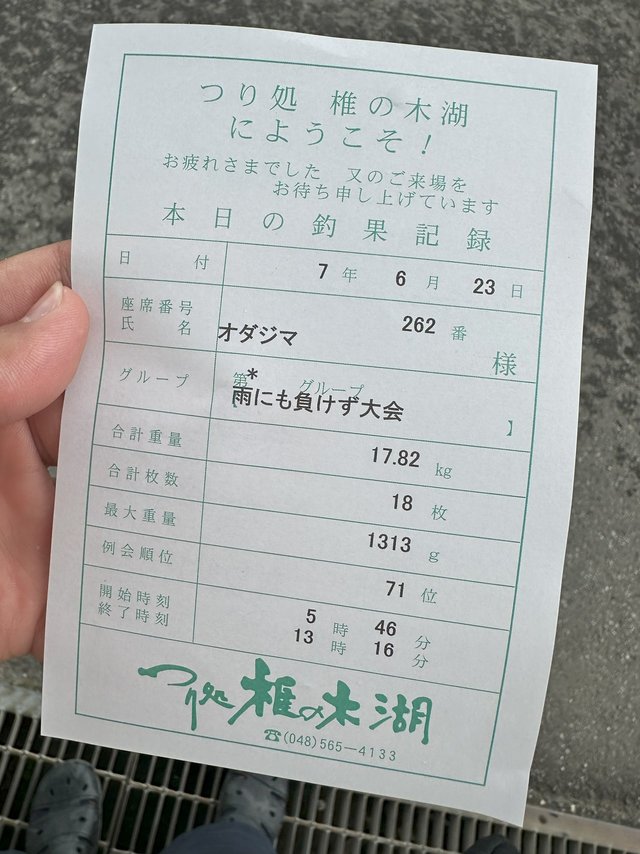 つり処 椎の木湖
にようこそ！
お疲れさまでした 又のご来場を
お待ち申し上げています
本日の釣果記録
日付 7年 6月 23日
座席番号 262番
氏名 オダジマ 様
グループ 第* グループ
【雨にも負けず大会 】
合計重量 17.82 kg
合計枚数 18 枚
最大重量 1313 g
例会順位 71 位
開始時刻 5時 46分
終了時刻 13時 16分
つり処 椎の木湖
☎(048)565—4133